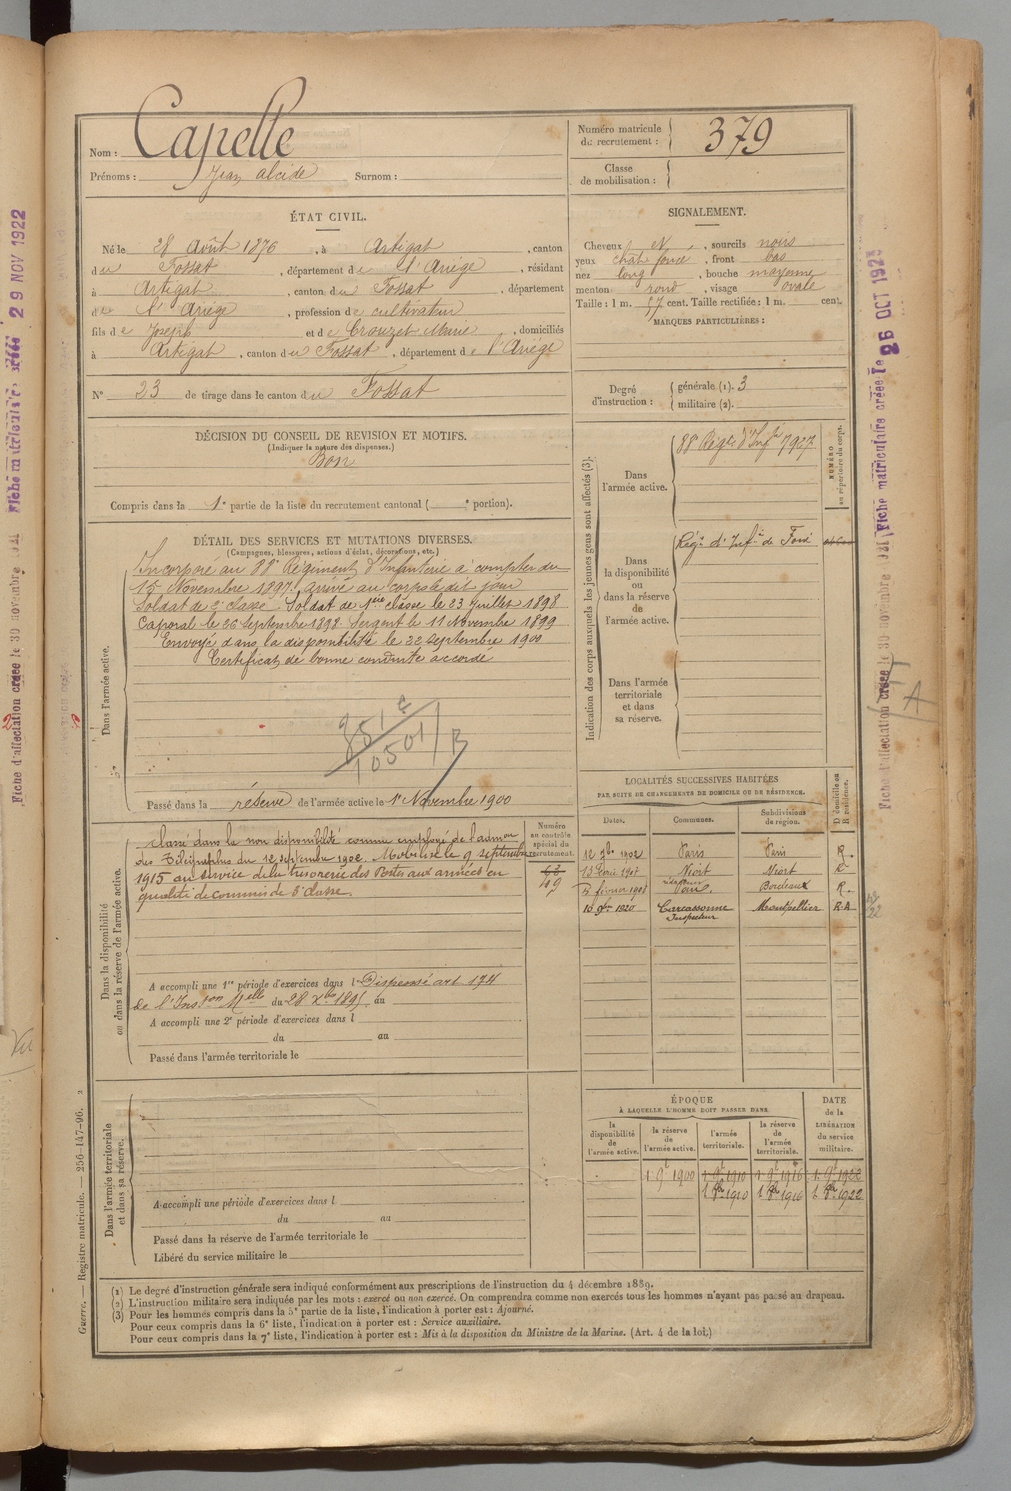 Nom : Capelle
Prénoms : Jean Alcide Surnom :
Numéro matricule de recrutement : 379
Classe de mobilisation :
ÉTAT CIVIL.
Né le 28 Août 1876, à Artigat, canton
du Fossat, département de l'Ariège, résidant
à Artigat, canton du Fossat, département
de l'Ariège, profession de cultivateur
fils de Joseph et de Crouzet Marie, domiciliés
à Artigat, canton du Fossat, département de l'Ariège
N° 23 de tirage dans le canton du Fossat
DÉCISION DU CONSEIL DE REVISION ET MOTIFS.
(Indiquer la nature des dispenses.)
Bon
Compris dans la 1e partie de la liste du recrutement cantonal ( e portion).
SIGNALEMENT.
Cheveux N, sourcils noirs
yeux chat foncé, front bas
nez long, bouche moyenne
menton rond, visage ovale
Taille : 1 m. 57 cent. Taille rectifiée : 1 m. cent.
MARQUES PARTICULIÈRES :
Degré d'instruction : générale (1). 3
militaire (2).
DÉTAIL DES SERVICES ET MUTATIONS DIVERSES.
(Campagnes, blessures, actions d'éclat, décorations, etc.)
Dans l'armée active.
Incorporé au 88e Régiment d'Infanterie à compter du
15 Novembre 1897, arrivé au corps le dit jour
Soldat de 2e classe. Soldat de 1ère classe le 23 Juillet 1898
Caporal le 26 Septembre 1898 Sergent le 11 Novembre 1899
Envoyé dans la disponibilité le 22 Septembre 1900
Certificat de bonne conduite accordé
10501
Passé dans la réserve de l'armée active le 1er Novembre 1900
Indication des corps auxquels les jeunes gens sont affectés (3).
NUMÉRO au répertoire du corps.
Dans l'armée active.
88e Régt d'Inf. 7927
Dans la disponibilité ou dans la réserve de l'armée active.
Régt d'Infie de Foix
Dans l'armée territoriale et dans sa réserve.
Dans la disponibilité ou dans la réserve de l'armée active.
Classé dans la non disponibilité comme employé de l'admon
des Télégraphes du 12 septembre 1902. Mobilisé le 9 septembre
1915 au service de la trésorerie des Postes aux armées en
qualité de commis de 3e classe.
Numéro au contrôle spécial du recrutement.
A accompli une 1re période d'exercices dans l Dispensé art 174
de l'Inston Melle du 28 Xbre 1895 au
A accompli une 2e période d'exercices dans l
du au
Passé dans l'armée territoriale le
LOCALITÉS SUCCESSIVES HABITÉES
PAR SUITE DE CHANGEMENTS DE DOMICILE OU DE RÉSIDENCE.
Dates. Communes. Subdivisions de région. D domicile ou R résidence.
12 7bre 1902 Paris Paris R.
13 février 1907 Niort Niort R
5 février 1908 Bordeaux R.
10 9bre 1920 Carcassonne Inspecteur Montpellier R.A
Dans l'armée territoriale et dans sa réserve.
A accompli une période d'exercices dans l
du au
Passé dans la réserve de l'armée territoriale le
Libéré du service militaire le
ÉPOQUE
À LAQUELLE L'HOMME DOIT PASSER DANS
la disponibilité de l'armée active.
la réserve de l'armée active.
l'armée territoriale.
la réserve de l'armée territoriale.
DATE de la LIBÉRATION du service militaire.
1 9bre 1900 1 9bre 1910 1 9bre 1916 1 9bre 1922
1 8bre 1910 1 8bre 1916 1 8bre 1922
(1) Le degré d'instruction générale sera indiqué conformément aux prescriptions de l'instruction du 4 décembre 1889.
(2) L'instruction militaire sera indiquée par les mots : exercé ou non exercé. On comprendra comme non exercés tous les hommes n'ayant pas passé au drapeau.
(3) Pour les hommes compris dans la 5e partie de la liste, l'indication à porter est : Ajourné.
Pour ceux compris dans la 6e liste, l'indication à porter est : Service auxiliaire.
Pour ceux compris dans la 7e liste, l'indication à porter est : Mis à la disposition du Ministre de la Marine. (Art. 4 de la loi.)
Guerre. — Registre matricule. — 256-147-96.
Fiche matriculaire créée 29 NOV 1922
Fiche d'affectation créée le 30 novembre
Fiche matriculaire créée le 26 OCT
Fiche d'affectation créée le 30 novembre
A
Vu